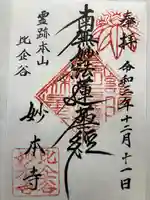 奉拝
令和二年十二月十一日
南無妙法蓮華経
霊跡本山
比企谷
妙本寺